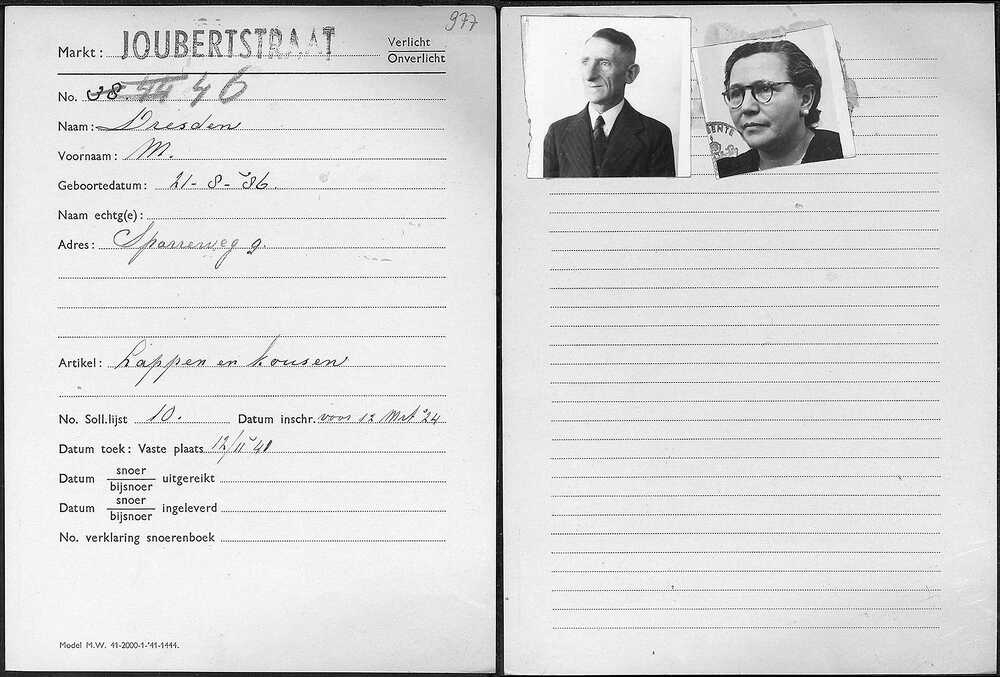 977
Markt: JOUBERTSTRAAT Verlicht
Onverlicht
No. 38. 44 46
Naam: Dresden
Voornaam: M.
Geboortedatum: 21-8-'86.
Naam echtg(e):
Adres: Sparreweg 9.
Artikel: Lappen en kousen
No. Soll.lijst 10. Datum inschr. voor 12 Mrt '24
Datum toek: Vaste plaats 12/11 '41
Datum snoer uitgereikt
bijsnoer
Datum snoer ingeleverd
bijsnoer
No. verklaring snoerenboek
Model M.W. 41-2000-1-'41-1444.